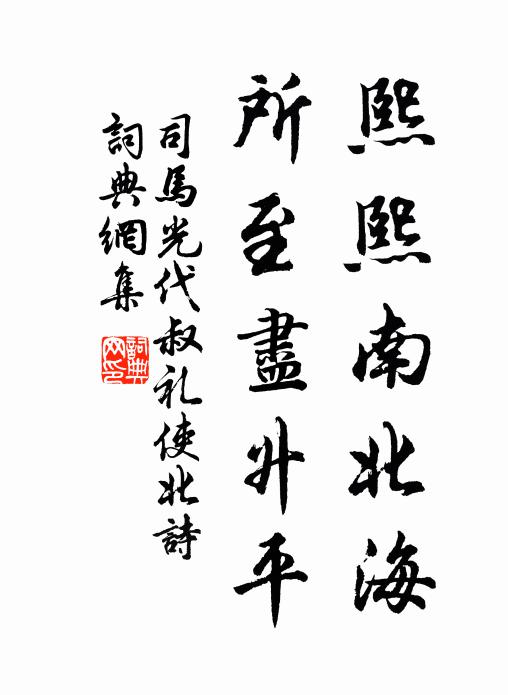 熙熙南北海
所至盡升平
司馬光代叔礼使北詩
詞典網集
詞典網印